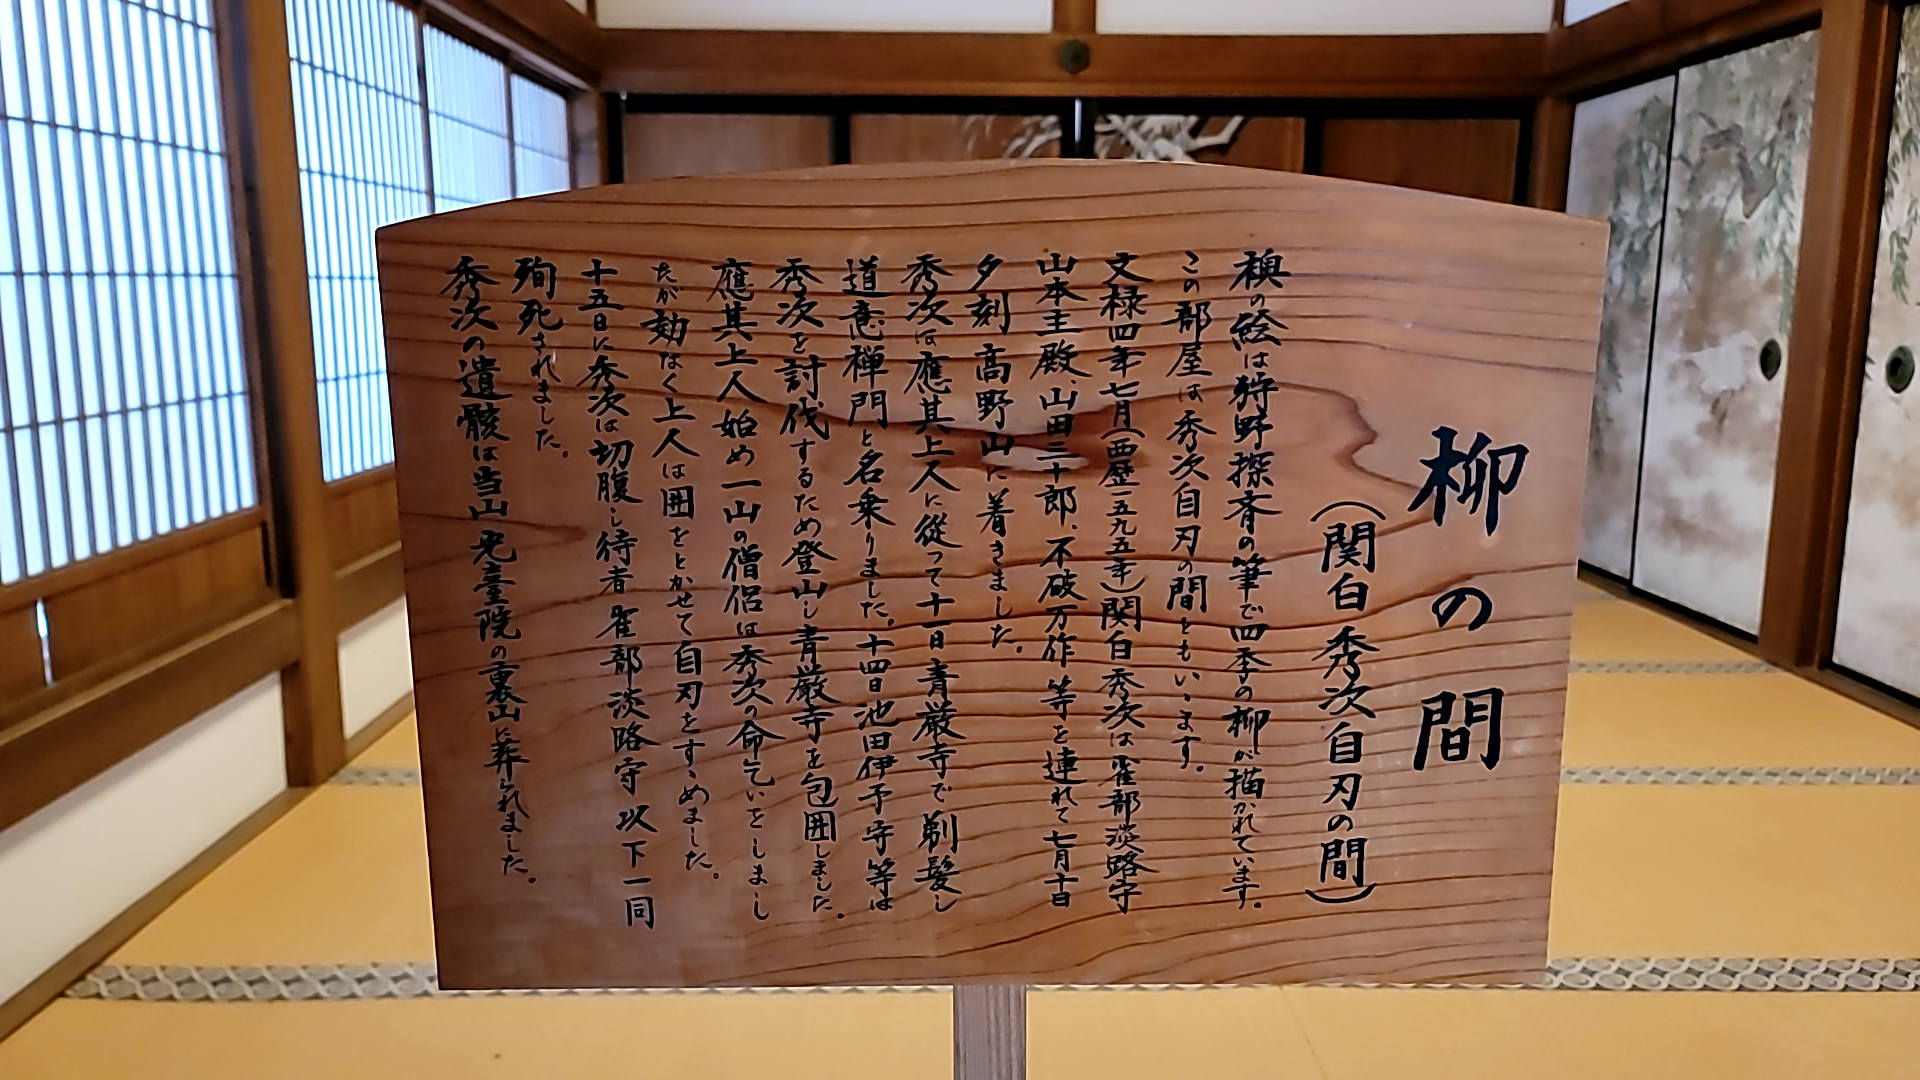 柳の間
(関白 秀次自刃の間)
襖の絵は狩野探斉の筆で四季の柳が描かれています。
この部屋は秀次自刃の間ともいゝます。
文禄四年七月(西歴一五九五年)関白秀次は雀部淡路守
山本主殿、山田三十郎、不破万作 等を連れて七月十日
夕刻 高野山に着きました。
秀次は應其上人に従って十一日 青厳寺で 剃髪し
道意禅門と名乗りました。十四日池田伊予守等は
秀次を討伐するため登山し青厳寺を包囲しました。
應其上人始め一山の僧侶は秀次の命ごいをしまし
たが効なく上人は囲をとかせて自刃をすゝめました。
十五日に秀次は切腹し侍者 雀部淡路守 以下一同
殉死されました。
秀次の遺骸は当山光臺院の裏山に葬られました。